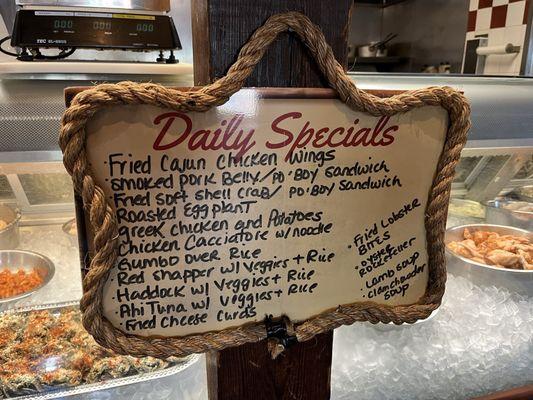 TEC
0.00 0.00 0.00
Daily Specials
· Fried Cajun chicken wings
· smoked pork Belly / po' Boy Sandwich
· Fried soft shell crab / po' Boy Sandwich
· Roasted Eggplant
· greek chicken and Potatoes
· Chicken Cacciatore w/ noodle
· Gumbo over Rice
· Red snapper w/ Veggies + Rice
· Haddock w/ Veggies + Rice
· Ahi Tuna w/ Veggies + Rice
· Fried Cheese Curds
· Fried Lobster
BITES
· oyster
Rockefeller
· Lamb soup
· clamchowder
soup